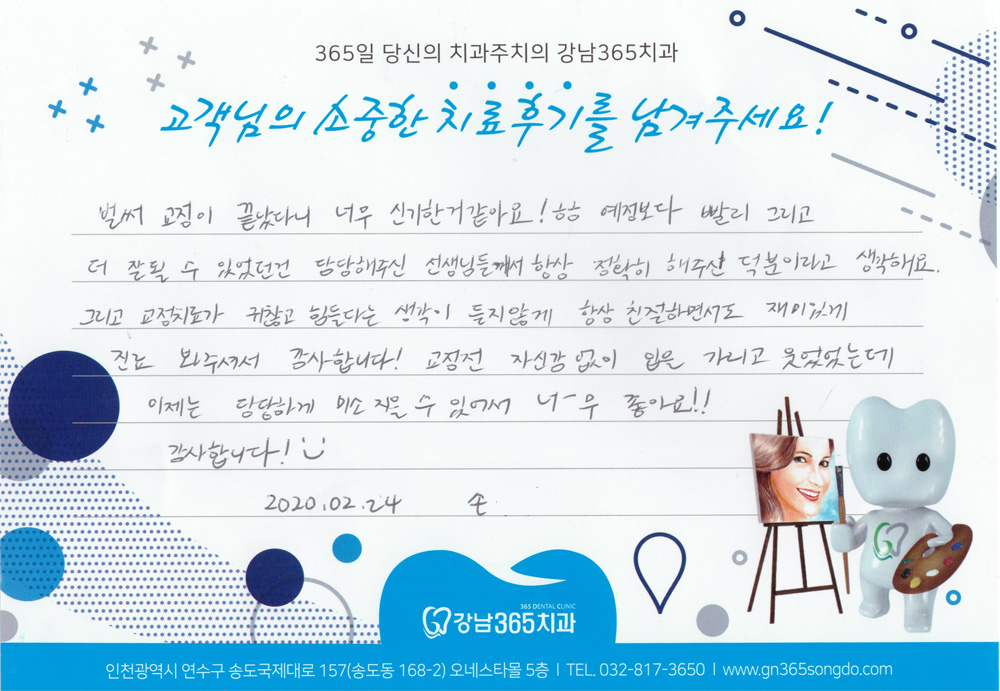 365일 당신의 치과주치의 강남365치과
고객님의 소중한 치료후기를 남겨주세요!
벌써 교정이 끝났다니 너무 신기한거같아요! ㅎㅎ 예정보다 빨리 그리고
더 잘될 수 있었던건 담당해주신 선생님들께서 항상 정확히 해주신 덕분이라고 생각해요.
그리고 교정치료가 귀찮고 힘들다는 생각이 들지않게 항상 친절하면서도 재미있게
진료 봐주셔서 감사합니다! 교정전 자신감 없이 입을 가리고 웃었었는데
이제는 당당하게 미소 지을 수 있어서 너-무 좋아요!!
감사합니다!
2020.02.24 손
365 DENTAL CLINIC
강남365치과
인천광역시 연수구 송도국제대로 157(송도동 168-2) 오네스타몰 5층 | TEL. 032-817-3650 | www.gn365songdo.com